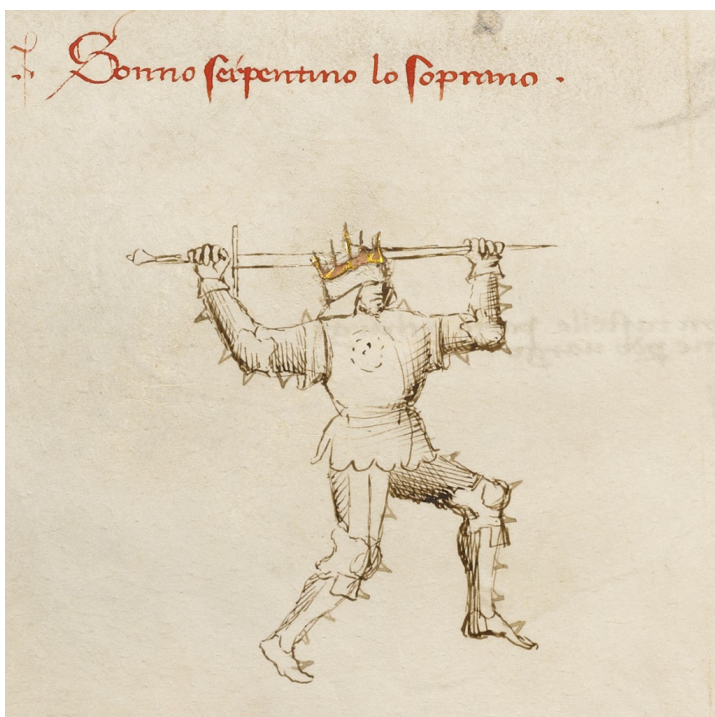 Sonno serpentino lo soprano.